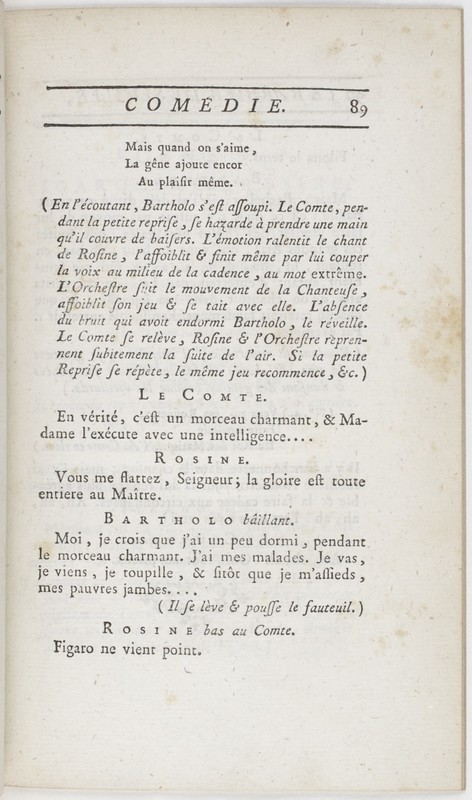 COMÉDIE. 89
Mais quand on s'aime,
La gêne ajoute encor
Au plaiſir même.
(En l'écoutant, Bartholo s'eſt aſſoupi. Le Comte, pen-
dant la petite repriſe, ſe hazarde à prendre une main
qu'il couvre de baiſers. L'émotion ralentit le chant
de Roſine, l'affoiblit & finit même par lui couper
la voix au milieu de la cadence, au mot extrême.
L'Orcheſtre ſuit le mouvement de la Chanteuſe,
affoiblit ſon jeu & ſe tait avec elle. L'abſence
du bruit qui avoit endormi Bartholo, le réveille.
Le Comte ſe relève, Roſine & l'Orcheſtre repren-
nent ſubitement la ſuite de l'air. Si la petite
Repriſe ſe répète, le même jeu recommence, &c.)
LE COMTE.
En vérité, c'eſt un morceau charmant, & Ma-
dame l'exécute avec une intelligence....
ROSINE.
Vous me flattez, Seigneur; la gloire eſt toute
entiere au Maître.
BARTHOLO bâillant.
Moi, je crois que j'ai un peu dormi, pendant
le morceau charmant. J'ai mes malades. Je vas,
je viens, je toupille, & ſitôt que je m'aſſieds,
mes pauvres jambes....
(Il ſe lève & pouſſe le fauteuil.)
ROSINE bas au Comte.
Figaro ne vient point.